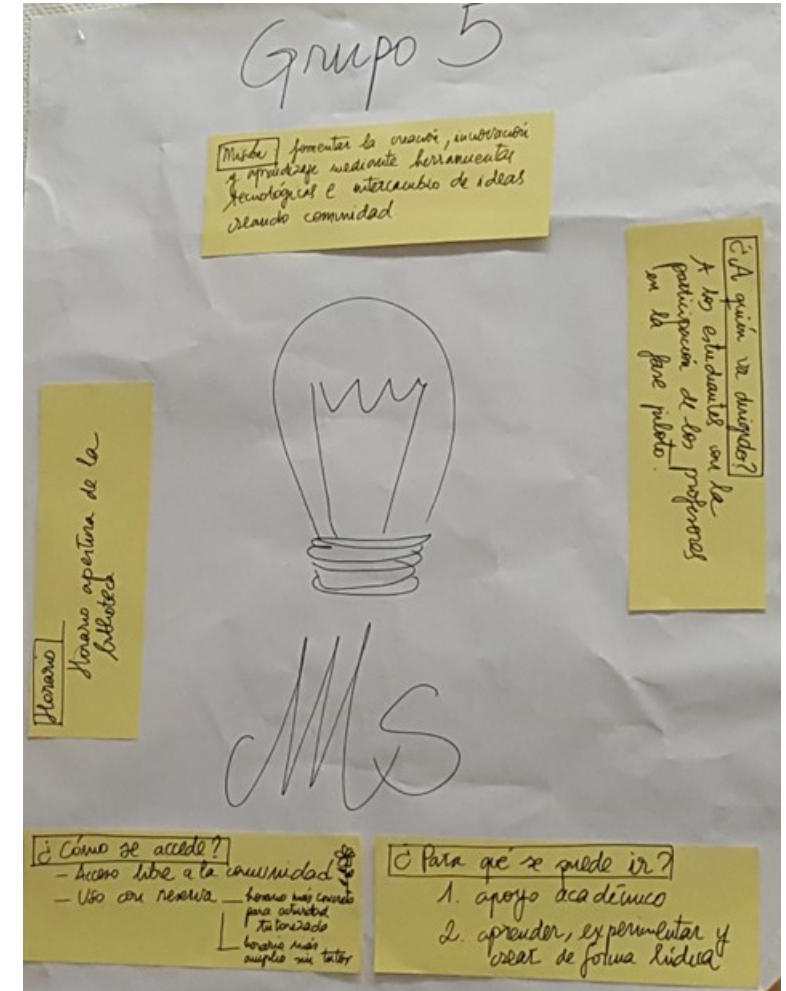 Grupo 5
Misión fomentar la creación, innovación
y aprendizaje mediante herramientas
tecnológicas e intercambio de ideas
creando comunidad
¿A quién va dirigido?
A los estudiantes con la
participación de los profesores
en la fase piloto.
Horario
Horario apertura de la
biblioteca
Ms
¿Cómo se accede?
- Acceso libre a la comunidad
- Uso con reserva
horario más concreto
para actividad
tutorizado
horario más
amplio sin tutor
¿Para qué se puede ir?
1. apoyo académico
2. aprender, experimentar y
crear de forma lúdica